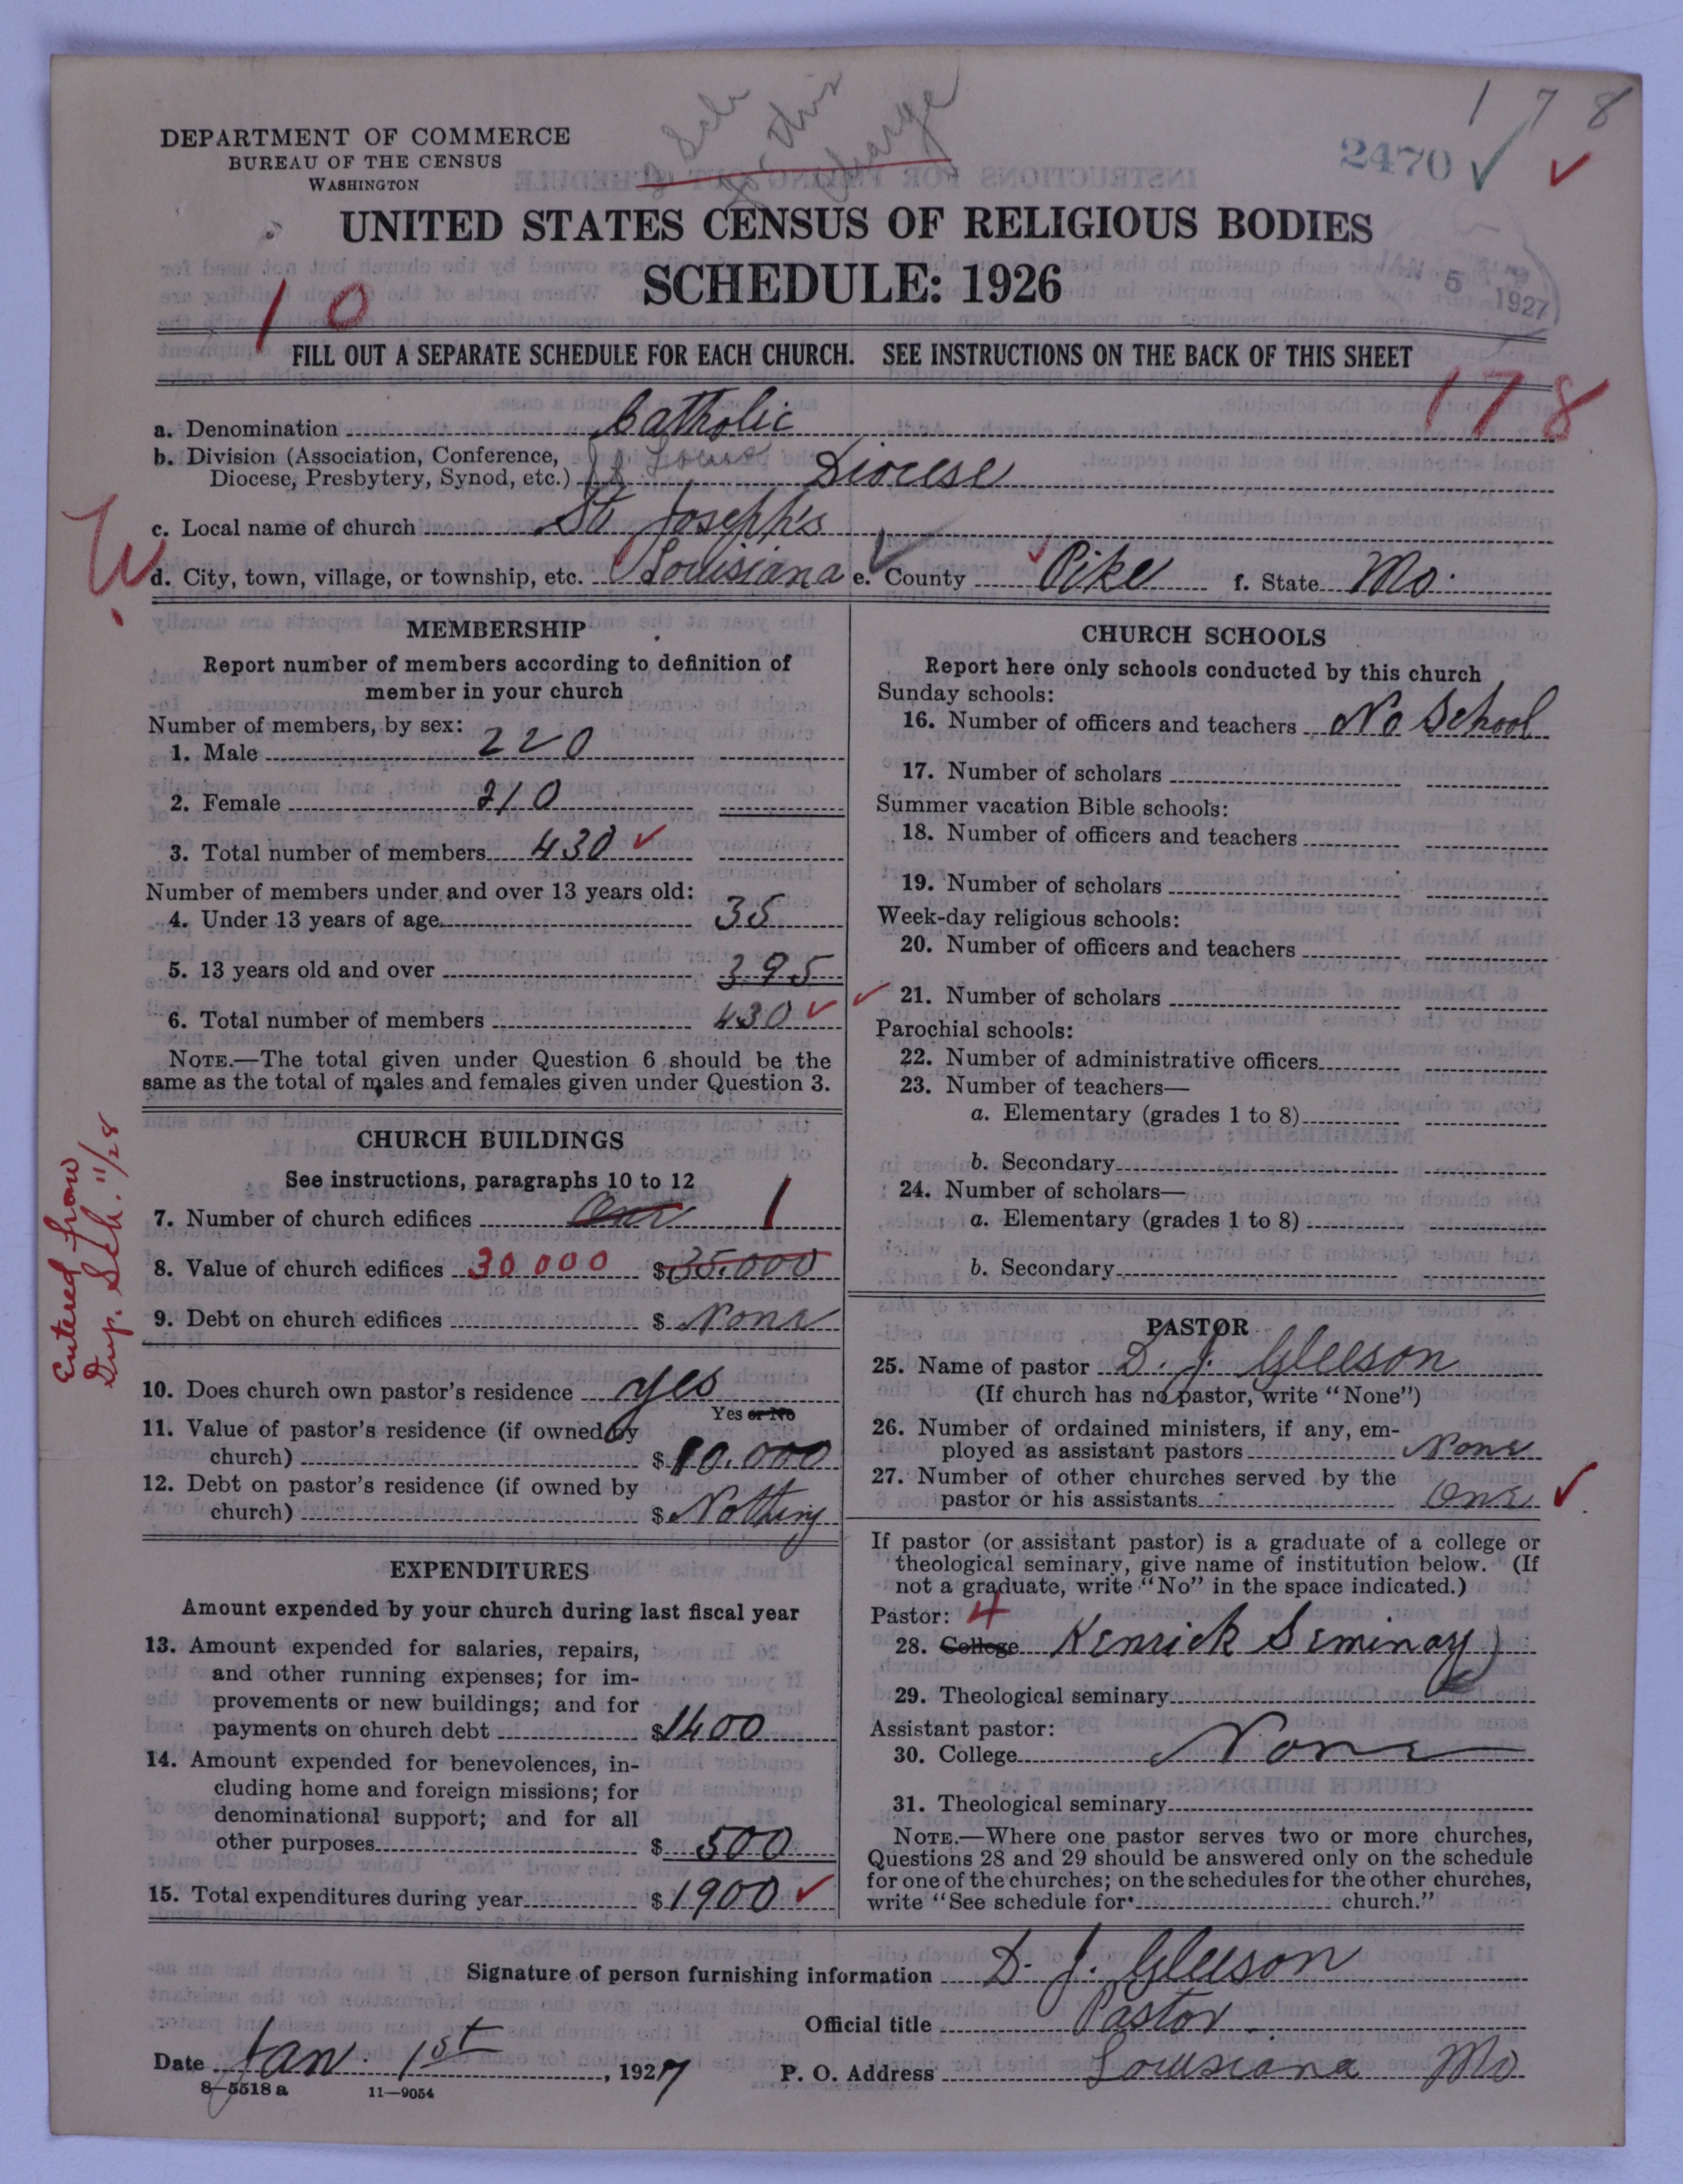 1 7 8
DEPARTMENT OF COMMERCE
BUREAU OF THE CENSUS
WASHINGTON
2 Sch
for this
charge
2470 ✓ ✓
UNITED STATES CENSUS OF RELIGIOUS BODIES
SCHEDULE: 1926
JAN 5 1927
1 0
FILL OUT A SEPARATE SCHEDULE FOR EACH CHURCH. SEE INSTRUCTIONS ON THE BACK OF THIS SHEET
178
a. Denomination Catholic
b. Division (Association, Conference,
Diocese, Presbytery, Synod, etc.) St Louis Diocese
c. Local name of church St Joseph's
d. City, town, village, or township, etc. Louisiana e. County Pike f. State Mo.
MEMBERSHIP
Report number of members according to definition of
member in your church
Number of members, by sex:
1. Male 220
2. Female 210
3. Total number of members 430 ✓
Number of members under and over 13 years old:
4. Under 13 years of age 35
5. 13 years old and over 395
6. Total number of members 430 ✓
NOTE.—The total given under Question 6 should be the
same as the total of males and females given under Question 3.
CHURCH BUILDINGS
See instructions, paragraphs 10 to 12
7. Number of church edifices One 1
8. Value of church edifices 30000 $35.000
9. Debt on church edifices $ None
10. Does church own pastor's residence yes
Yes or No
11. Value of pastor's residence (if owned by
church) $10.000
12. Debt on pastor's residence (if owned by
church) $ Nothing
Entered from
Dup. Sch. 11/28
EXPENDITURES
Amount expended by your church during last fiscal year
13. Amount expended for salaries, repairs,
and other running expenses; for im-
provements or new buildings; and for
payments on church debt $1400
14. Amount expended for benevolences, in-
cluding home and foreign missions; for
denominational support; and for all
other purposes $ 500
15. Total expenditures during year $1900 ✓
CHURCH SCHOOLS
Report here only schools conducted by this church
Sunday schools:
16. Number of officers and teachers No School
17. Number of scholars
Summer vacation Bible schools:
18. Number of officers and teachers
19. Number of scholars
Week-day religious schools:
20. Number of officers and teachers
✓ 21. Number of scholars
Parochial schools:
22. Number of administrative officers
23. Number of teachers—
a. Elementary (grades 1 to 8)
b. Secondary
24. Number of scholars—
a. Elementary (grades 1 to 8)
b. Secondary
PASTOR
25. Name of pastor D. J. Gleeson
(If church has no pastor, write "None")
26. Number of ordained ministers, if any, em-
ployed as assistant pastors None
27. Number of other churches served by the
pastor or his assistants One ✓
If pastor (or assistant pastor) is a graduate of a college or
theological seminary, give name of institution below. (If
not a graduate, write "No" in the space indicated.)
Pastor: 4
28. College Kenrick Seminary
29. Theological seminary
Assistant pastor:
30. College None
31. Theological seminary
NOTE.—Where one pastor serves two or more churches,
Questions 28 and 29 should be answered only on the schedule
for one of the churches; on the schedules for the other churches,
write "See schedule for church."
Signature of person furnishing information D. J. Gleeson
Official title Pastor
Date Jan. 1st, 1927 P. O. Address Louisiana Mo
8—5518 a 11—9054